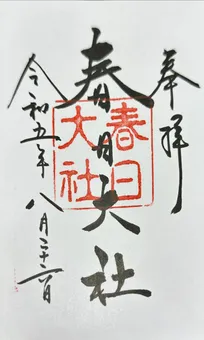 奉拝
春日大社
春日大社
令和五年八月二十六日